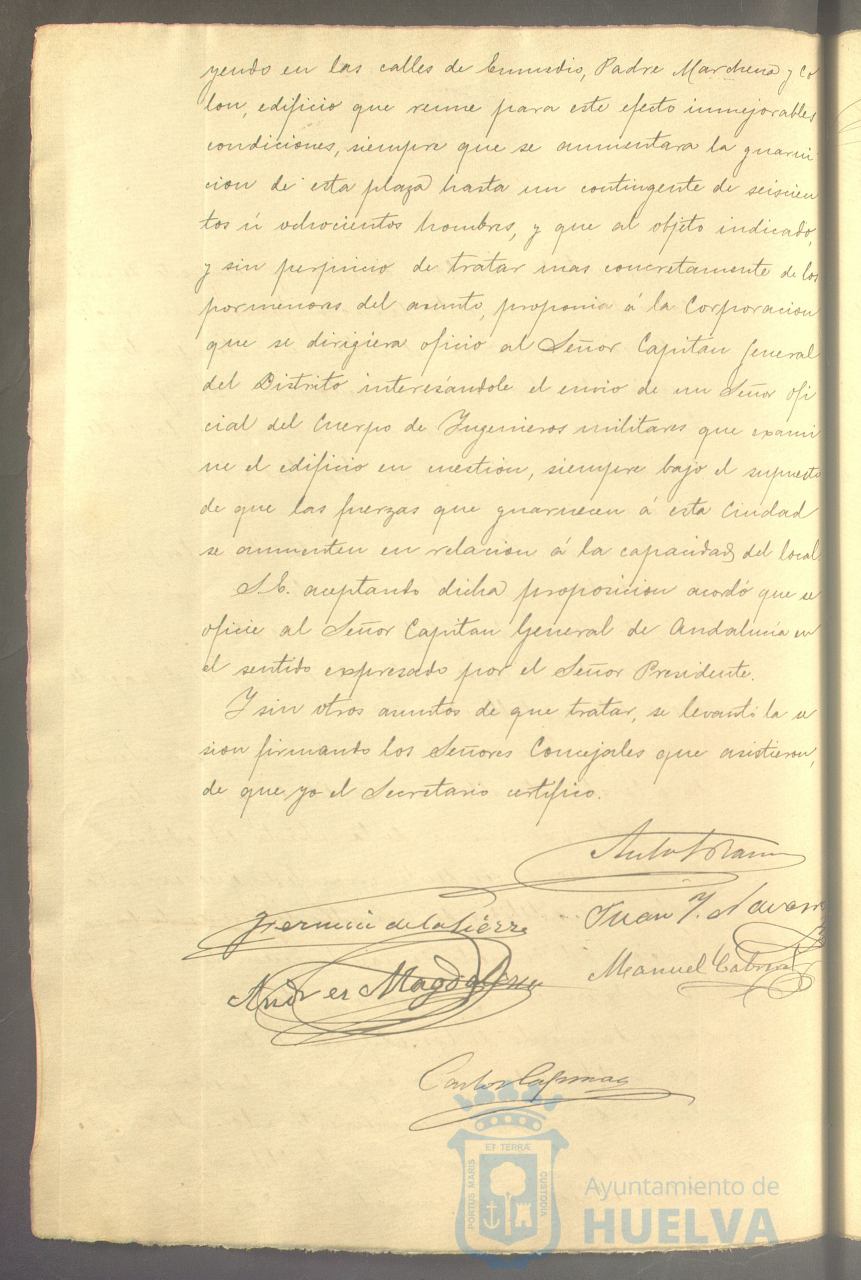 yendo en las calles de Enmedio, Padre Marchena y Co
lon, edificio que reune para este efecto inmejorables
condiciones, siempre que se aumentara la guarni
cion de esta plaza hasta un contingente de seiscien
tos ú ochocientos hombres, y que al objeto indicado,
y sin perjuicio de tratar mas concretamente de los
pormenores del asunto, proponia á la Corporacion
que se dirigiera oficio al Señor Capitan General
del Distrito interesándole el envio de un Señor ofi
cial del Cuerpo de Ingenieros militares que exami
ne el edificio en cuestion, siempre bajo el supuesto
de que las fuerzas que guarnecen á esta Ciudad
se aumenten en relacion á la capacidad del local.
S.E. aceptando dicha proposicion acordó que se
oficie al Señor Capitan General de Andalucía en
el sentido expresado por el Señor Presidente.
Y sin otros asuntos de que tratar, se levantó la se
sion firmando los Señores Concejales que asistieron,
de que yo el Secretario certifico.
Juan J. Navarro
de la Sierra
Manuel
Andres Magdalena
Carlos
PORTUS MARIS
ET TERRÆ
CUSTODIA
Ayuntamiento de
HUELVA